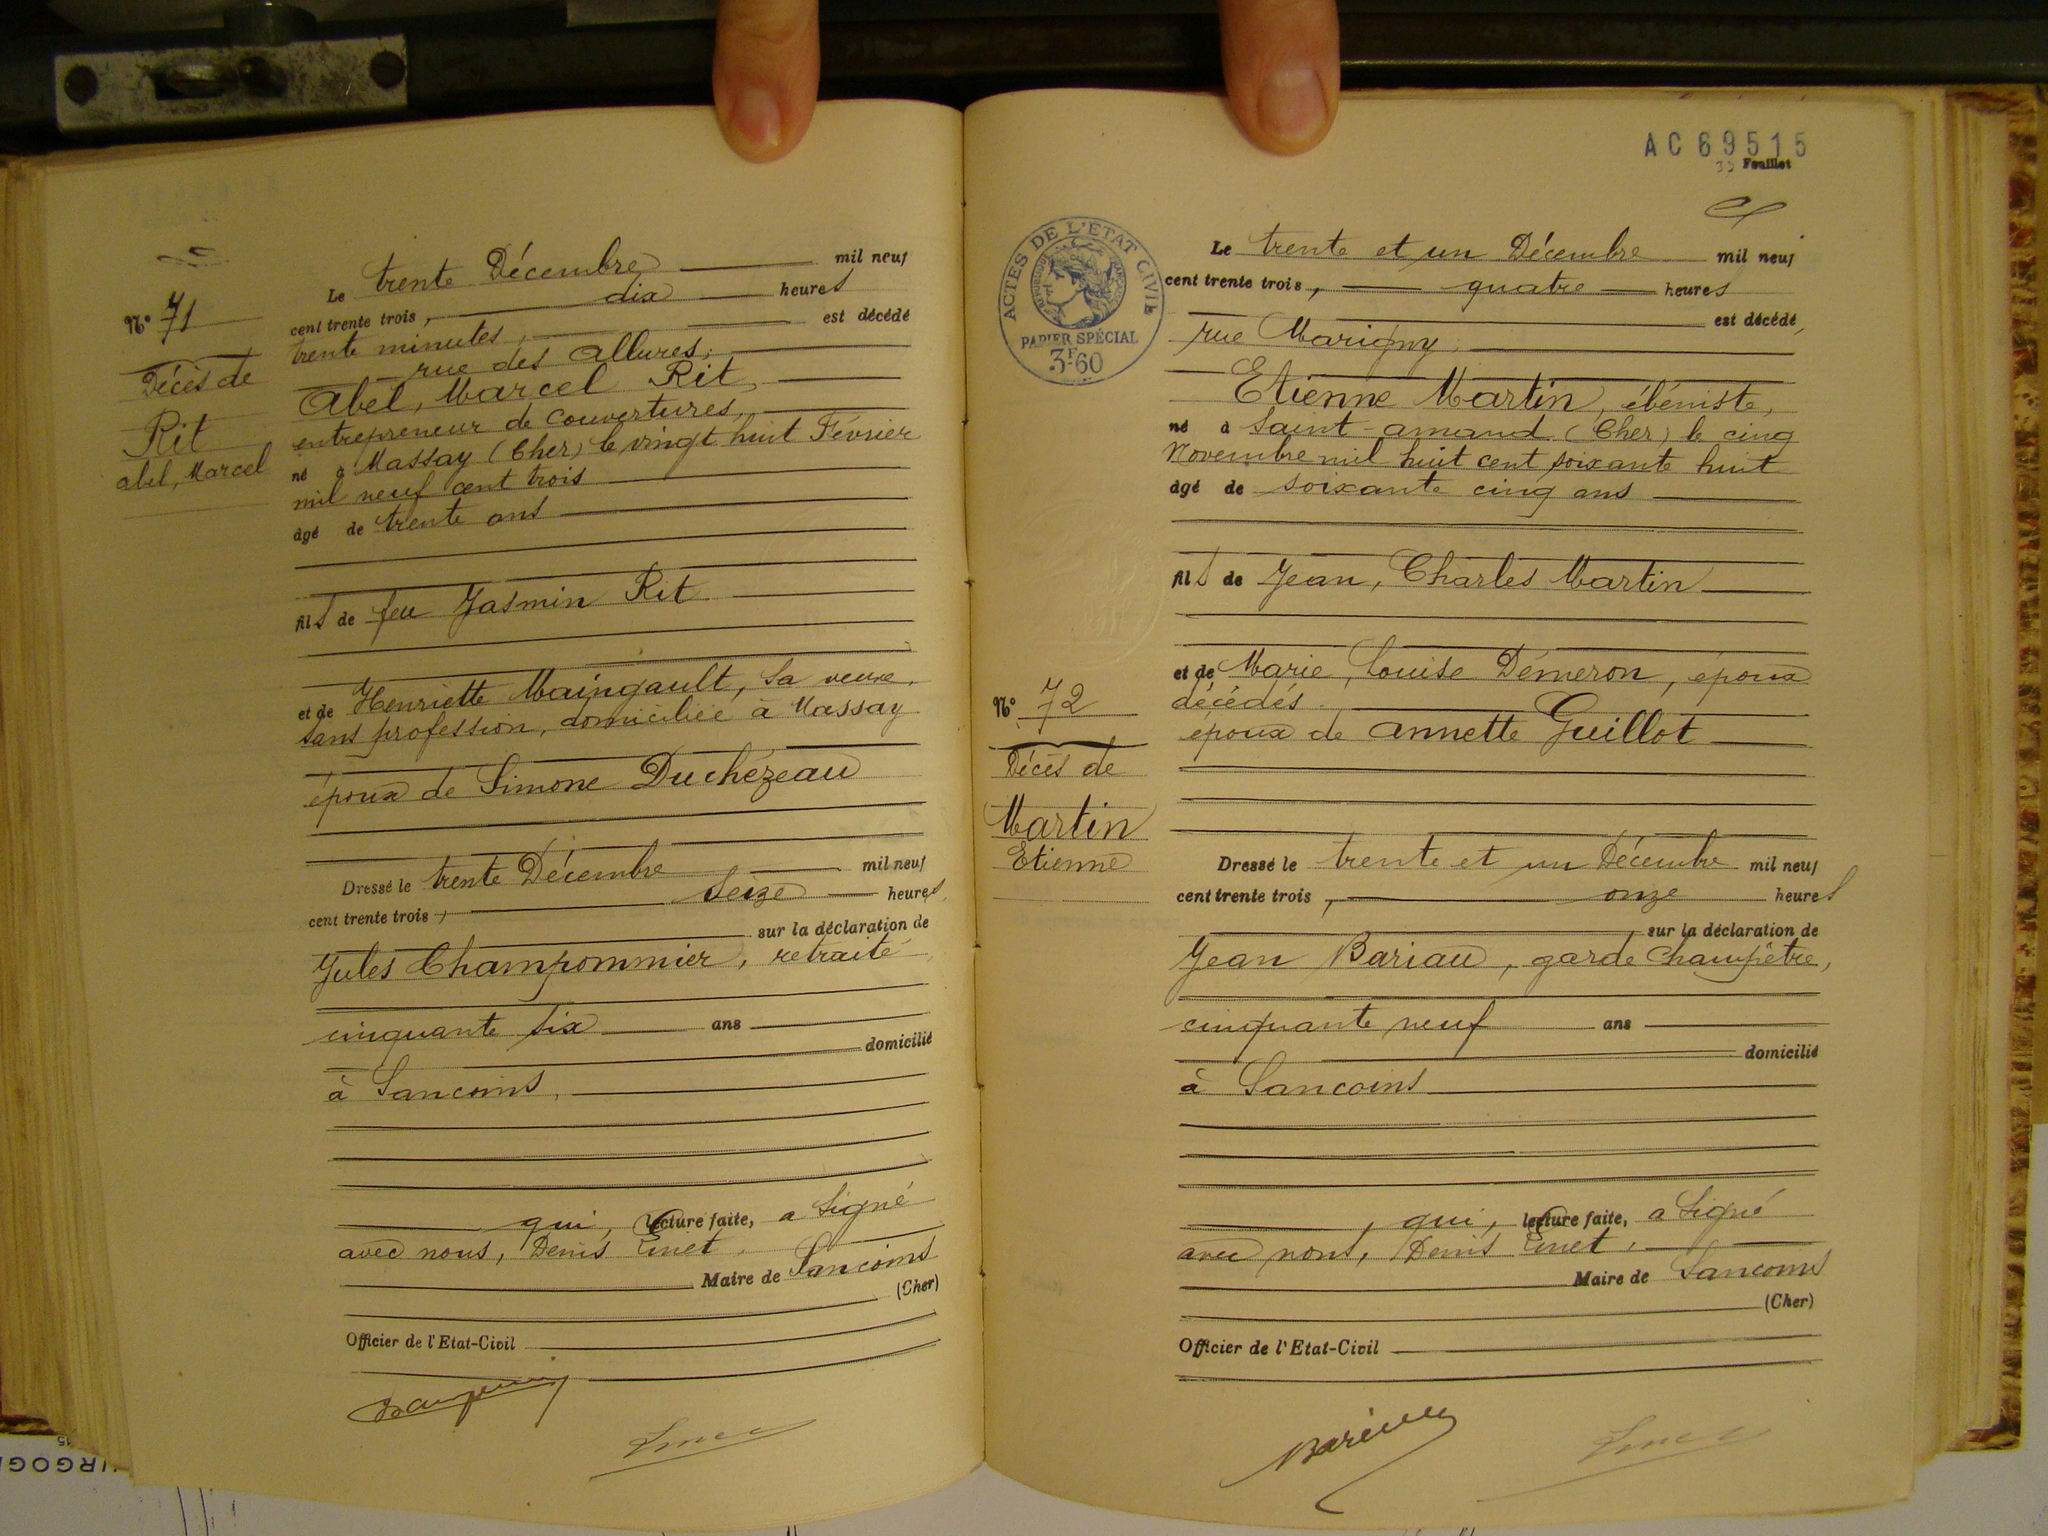 Le trente Décembre mil neuf
cent trente trois, dix heures
trente minutes, est décédé
rue des Allures,
Abel, Marcel Rit,
entrepreneur de couvertures,
né à Massay (Cher) le vingt huit Février
mil neuf cent trois
âgé de trente ans
fils de feu Jasmin Rit
et de Henriette Maingault, sa veuve,
sans profession, domiciliée à Massay
époux de Simone Duchézeau
Dressé le trente Décembre mil neuf
cent trente trois, seize heures,
sur la déclaration de
Jules Champommier, retraité,
cinquante six ans
domicilié
à Sancoins,
qui, lecture faite, a signé
avec nous, Denis
Maire de Sancoins
(Cher)
Officier de l'Etat-Civil
N° 71
Décès de
Rit
Abel, Marcel
AC 69515
Feuillet
ACTES DE L'ÉTAT CIVIL
RÉPUBLIQUE FRANÇAISE
PAPIER SPÉCIAL
3F60
Le trente et un Décembre mil neuf
cent trente trois, quatre heures
est décédé,
rue Marigny,
Etienne Martin, ébéniste,
né à Saint-Amand (Cher) le cinq
Novembre mil huit cent soixante huit
âgé de soixante cinq ans
fils de Jean, Charles Martin
et de Marie, Louise Démeron, époux
décédés.
époux de Annette Guillot
N° 72
Décès de
Martin
Etienne
Dressé le trente et un Décembre mil neuf
cent trente trois, onze heures
sur la déclaration de
Jean Bariau, garde champêtre,
cinquante neuf ans
domicilié
à Sancoins
, qui, lecture faite, a signé
avec nous, Denis
Maire de Sancoins
(Cher)
Officier de l'Etat-Civil
Bariau